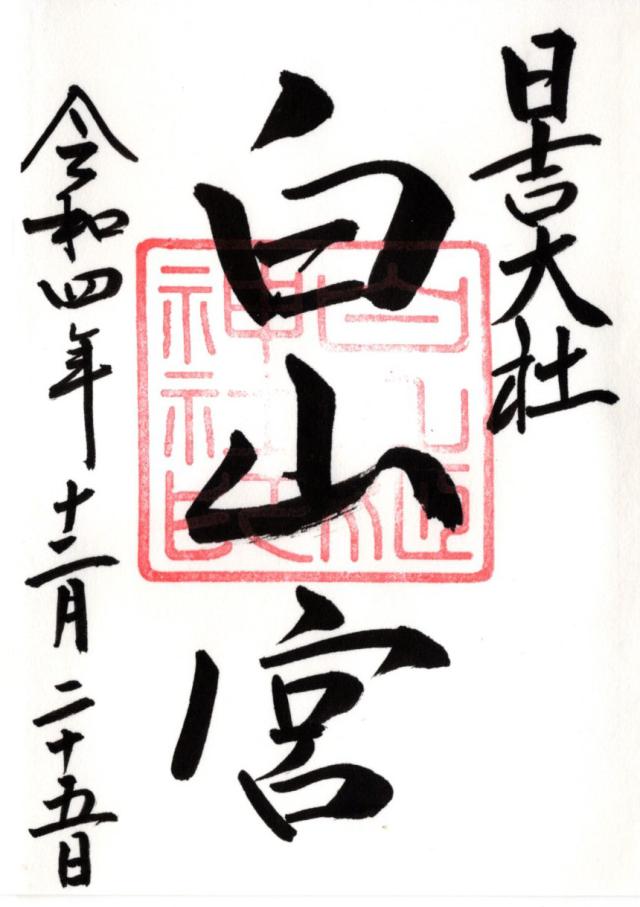 日吉大社
白山宮
令和四年十二月二十五日